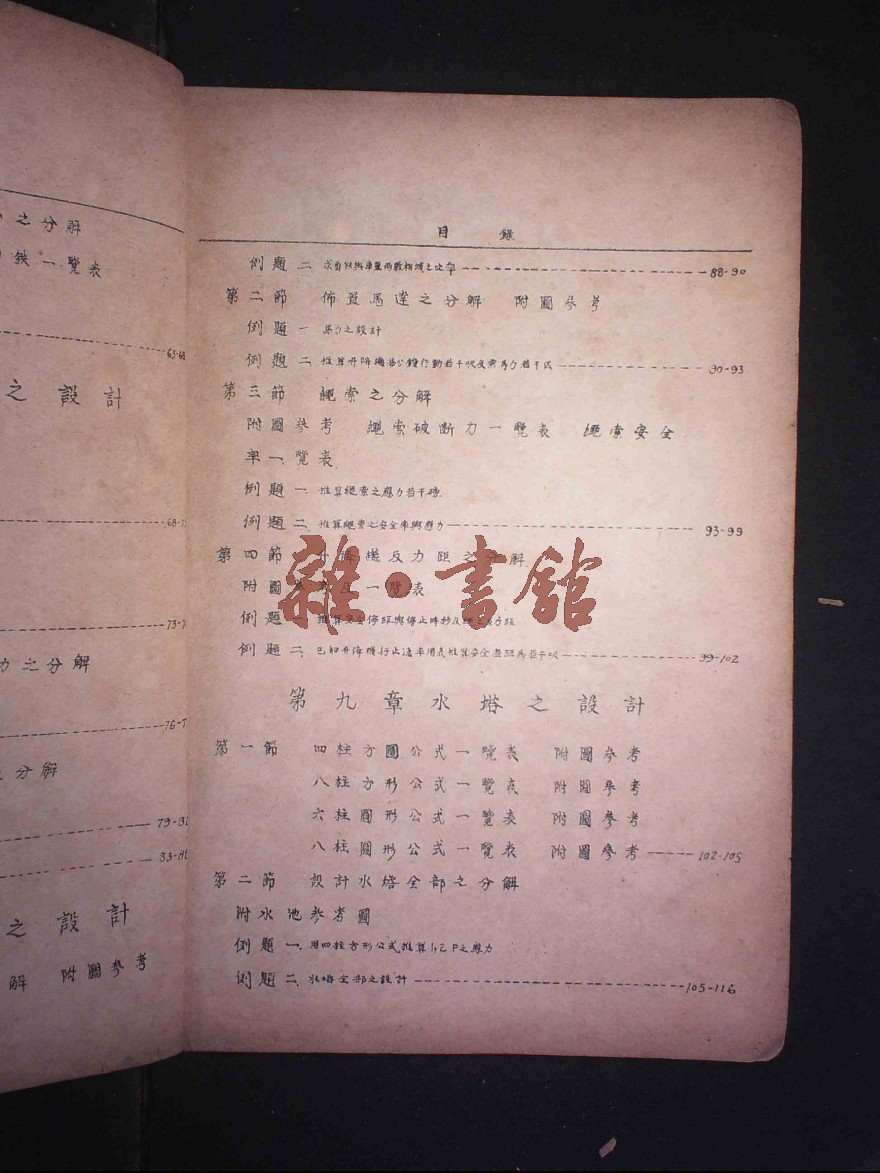 之分解
鉄一覽表
63-68
之設計
68-7
73-7
力之分解
76-7
分解
79-8
83-8
之設計
解 附圖參考
目 錄
例題二 88-90
第二節 佈置馬達之分解 附圖參考
例題一 馬力之設計
例題二 推算升降機 行動若干 馬力若干 90-93
第三節 繩索之分解
附圖參考 繩索破断力一覽表 繩索安全
率一覽表
例題一 推算繩索之應力若干磅
例題二 推算繩索之安全率與應力 93-99
第四節 升降機反力距之分解
附圖參考及一覽表
例題一 推算安全停距與停止時秒及
例題二 已知升降機行止速率用表推算安全 距為若干呎 99-102
第九章水塔之設計
第一節 四柱方圓公式一覽表 附圖參考
八柱方形公式一覽表 附圖參考
六柱圓形公式一覽表 附圖參考
八柱圓形公式一覽表 附圖參考 102-105
第二節 設計水塔全部之分解
附水池參考圖
例題一 用四柱方形公式推算1,2P之應力
例題二 水塔全部之設計 105-116
雜·書館